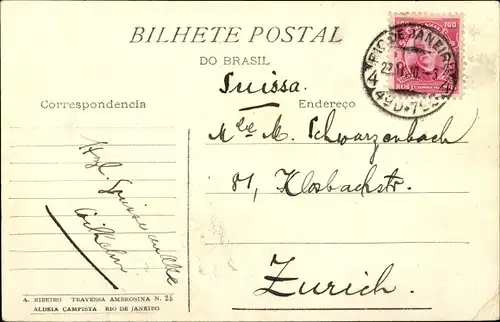 BILHETE POSTAL
DO BRASIL
100
RIO DE JANEIRO
4
Suissa.
Correspondencia
Endereço
Mlle M. Schwarzenbach
81, Klosbachstr.
Zurich.
Hzl. Grüsse an Alle
Wilhelm
A. RIBEIRO TRAVESSA AMBROSINA N. 25
ALDEIA CAMPISTA RIO DE JANEIRO